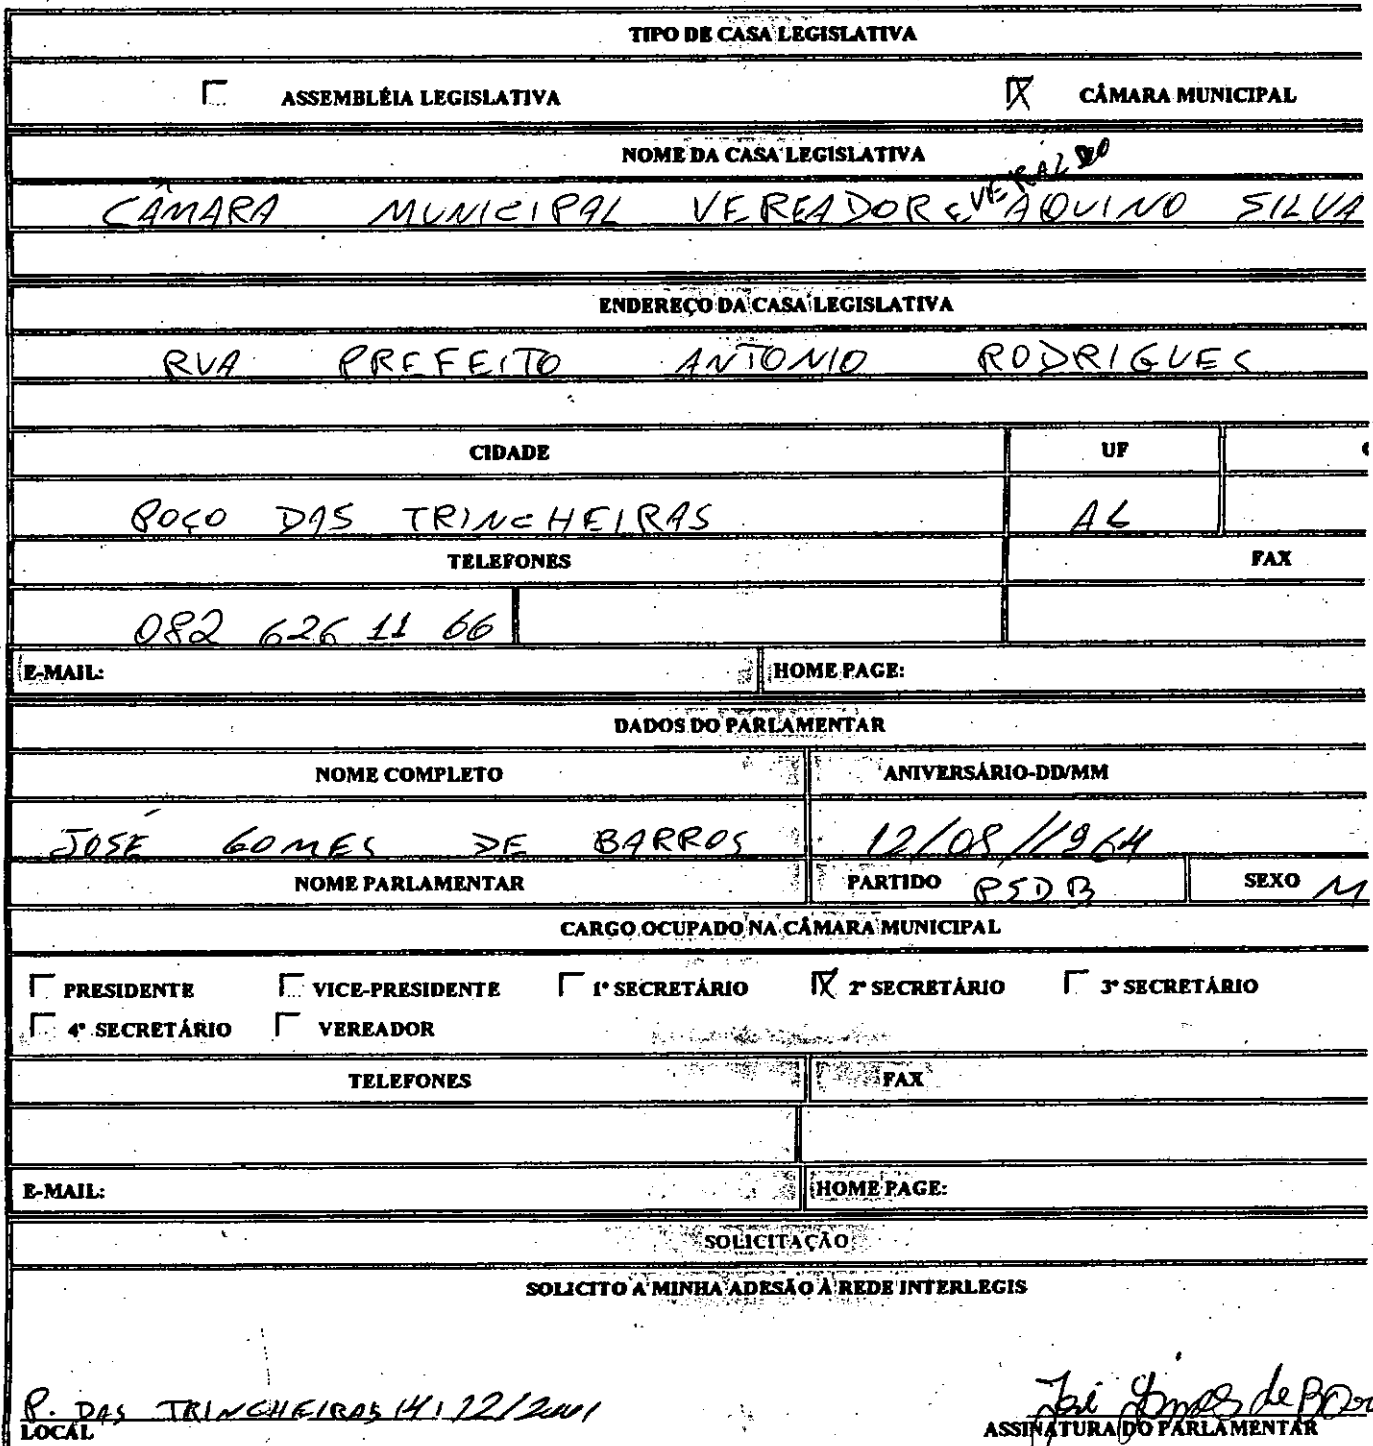 TIPO DE CASA LEGISLATIVA
ASSEMBLÉIA LEGISLATIVA CÂMARA MUNICIPAL
NOME DA CASA LEGISLATIVA
CÂMARA MUNICIPAL VEREADOR EVERALDO AQUINO SILVA
ENDEREÇO DA CASA LEGISLATIVA
RUA PREFEITO ANTONIO RODRIGUES
CIDADE UF
POÇO DAS TRINCHEIRAS AL
TELEFONES FAX
082 626 11 66
E-MAIL: HOME PAGE:
DADOS DO PARLAMENTAR
NOME COMPLETO ANIVERSÁRIO-DD/MM
JOSÉ GOMES DE BARROS 12/08/1964
NOME PARLAMENTAR PARTIDO PSDB SEXO M
CARGO OCUPADO NA CÂMARA MUNICIPAL
PRESIDENTE VICE-PRESIDENTE 1º SECRETÁRIO 2º SECRETÁRIO 3º SECRETÁRIO
4º SECRETÁRIO VEREADOR
TELEFONES FAX
E-MAIL: HOME PAGE:
SOLICITAÇÃO
SOLICITO A MINHA ADESÃO À REDE INTERLEGIS
P. DAS TRINCHEIRAS 14/12/2001 José Gomes de
LOCAL ASSINATURA DO PARLAMENTAR